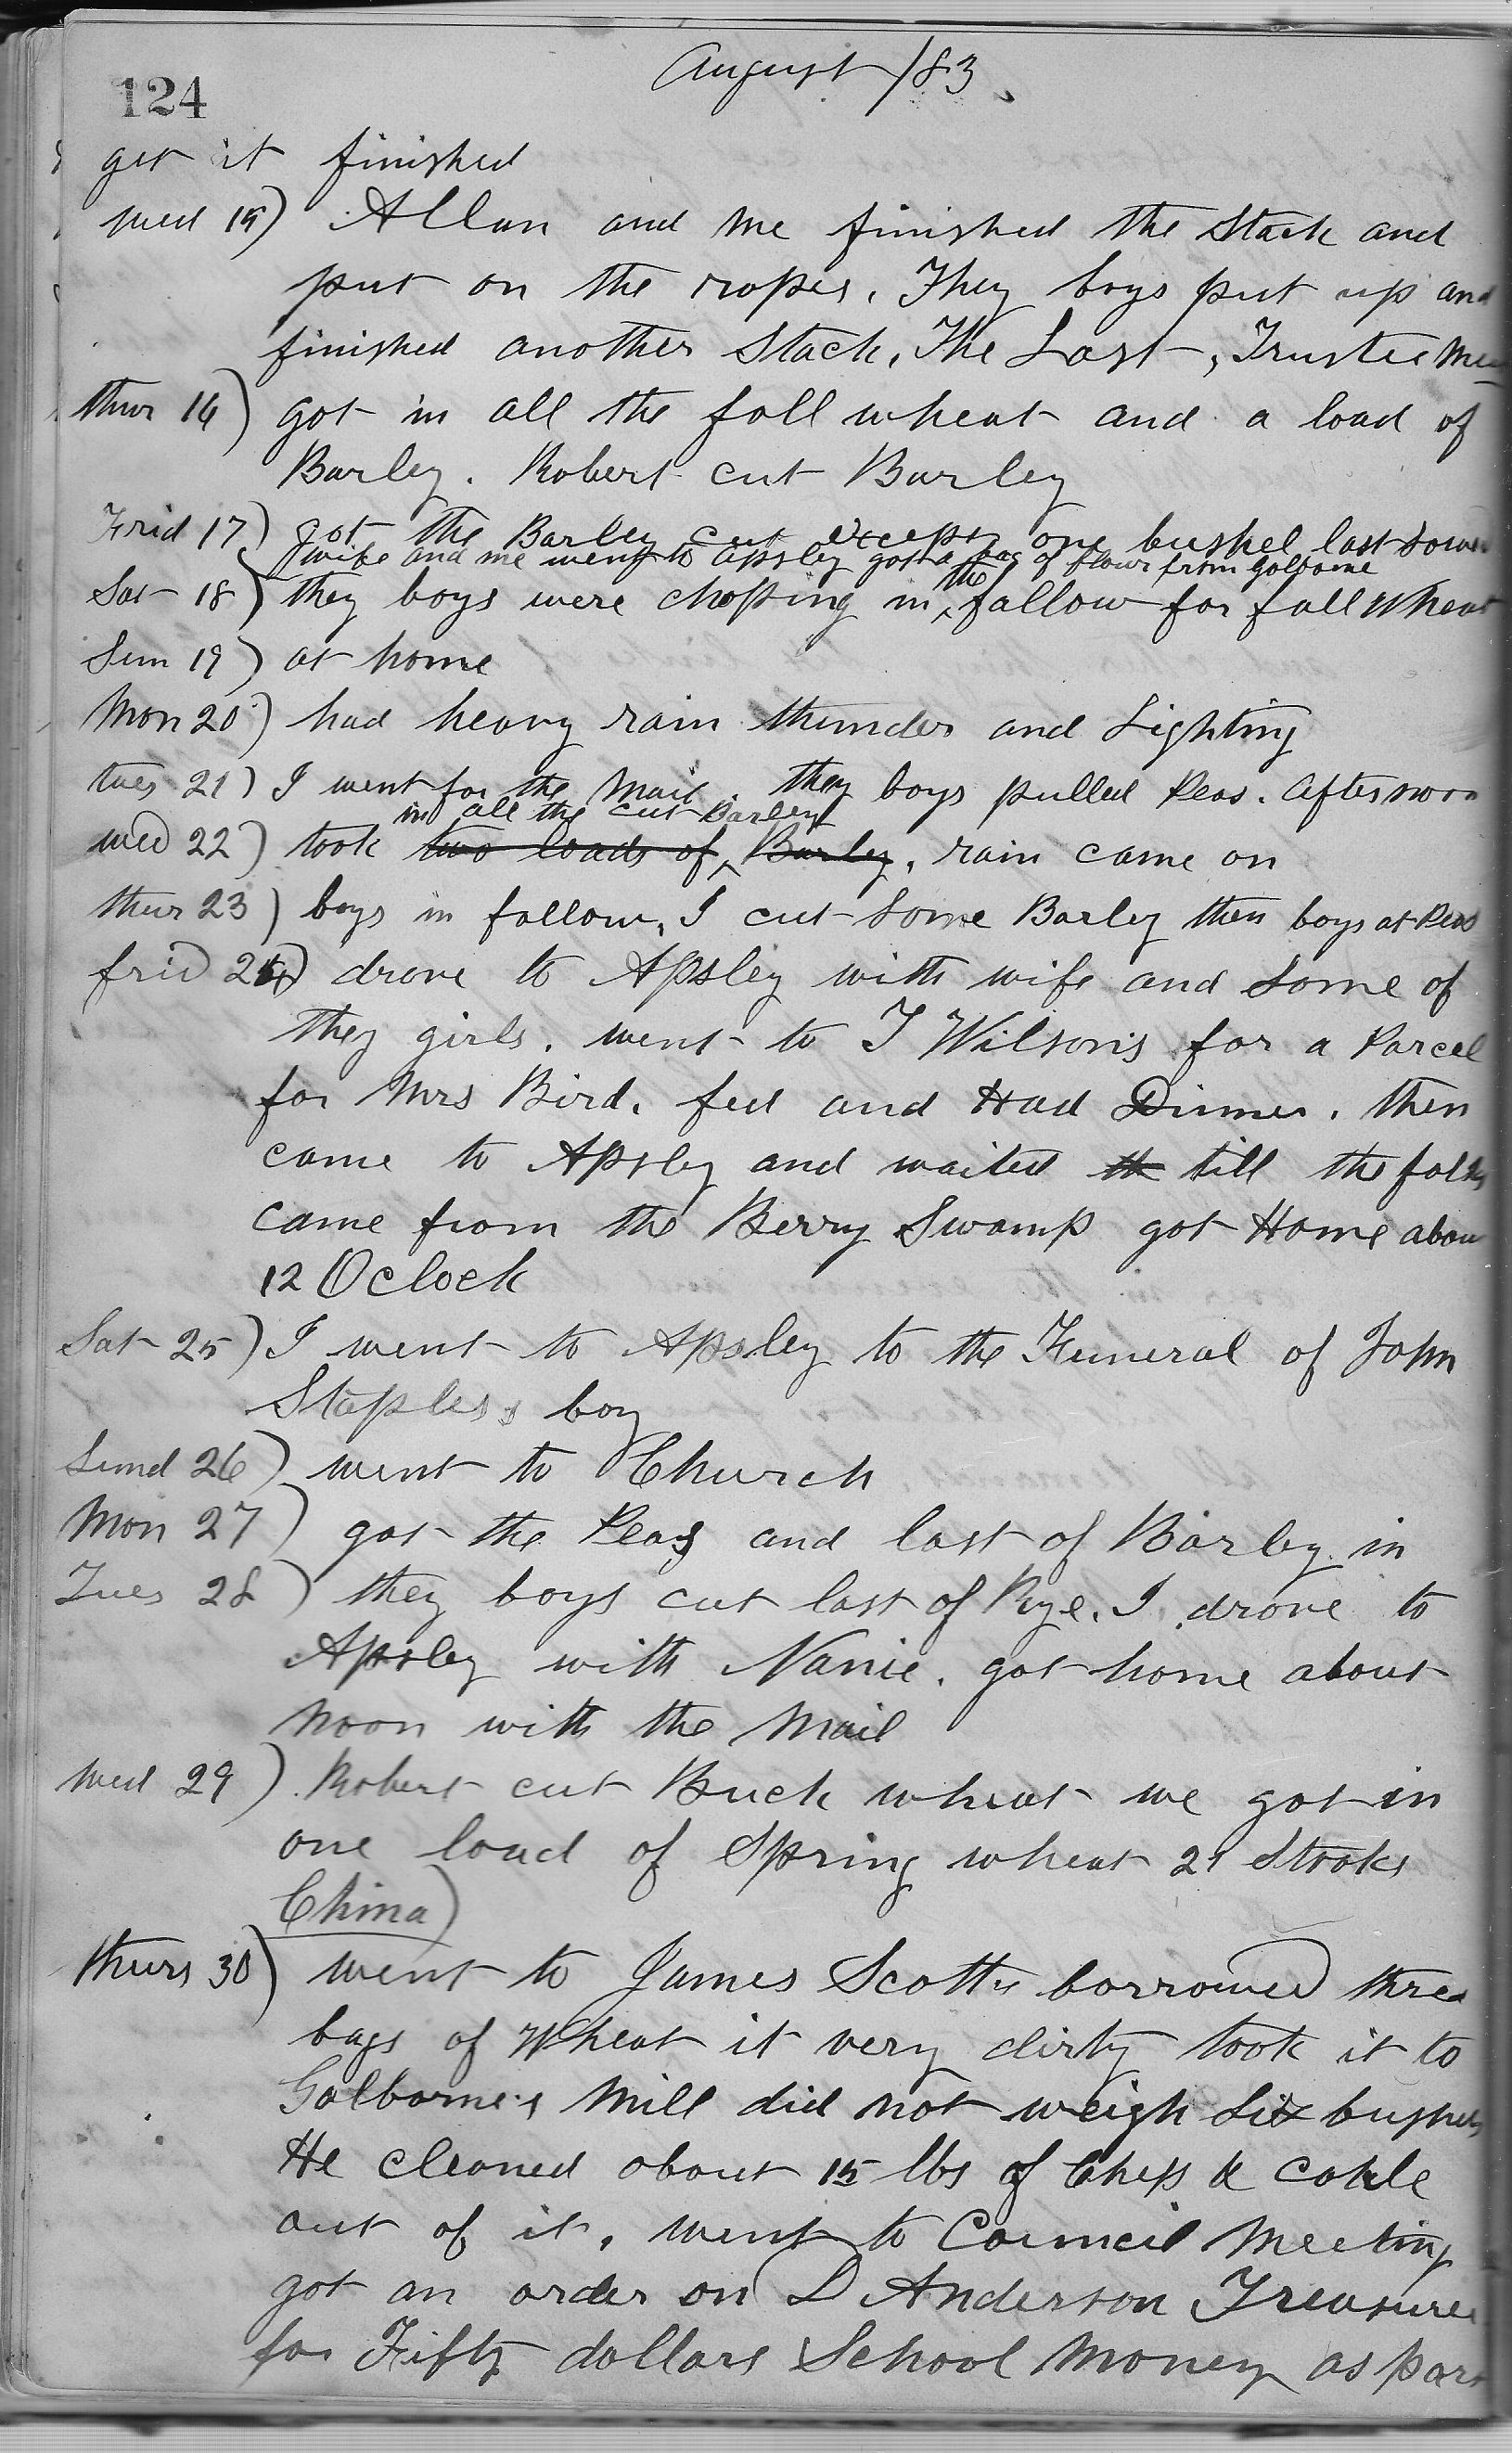 124
August /83
get it finished
Wed 15) Allan and me finished the Stack and
put on the ropes. They boys put up and
finished another Stack, The Last, Trustee
thur 16) got in all the fall wheat and a load of
Barley. Robert cut Barley
Frid 17) got the Barley cut except one bushel last Sown
wife and me went to apsley got a bag of flour from Golborne
Sat 18) they boys were choping in the fallow for fall wheat
Sun 19) at home
Mon 20) had heavy rain thunder and Lighting
tues 21) I went for the Mail. they boys pulled Peas. afternoon
in all the cut Barley
wed 22) took two loads of Barley, rain came on
thur 23) boys in fallow, I cut Some Barley then boys at Peas
frid 24) drove to Apsley with wife and Some of
they girls. went to J Wilson's for a Parcel
for Mrs Bird. fed and Had Dinner. then
came to Apsley and waited th till the folks
came from the Berry Swamp got Home abou
12 Oclock
Sat 25) I went to Apsley to the Funeral of John
Staples's boy
Sund 26) went to Church
Mon 27) got the Peas and last of Barley in
Tues 28) they boys cut last of Rye. I drove to
Apsley with Nanie. got home about
Noon with the Mail
Wed 29) Robert cut Buck wheat we got in
one load of Spring wheat 21 Stooks
China)
thurs 30) went to James Scotts borrowed three
bags of Wheat it very dirty took it to
Golborne's Mill did not weigh Six bushels
He cleaned about 15 lbs of Chess & Cokle
out of it, went to Council Meeting
got an order on D Anderson Treasurer
for Fifty dollars School Money as part